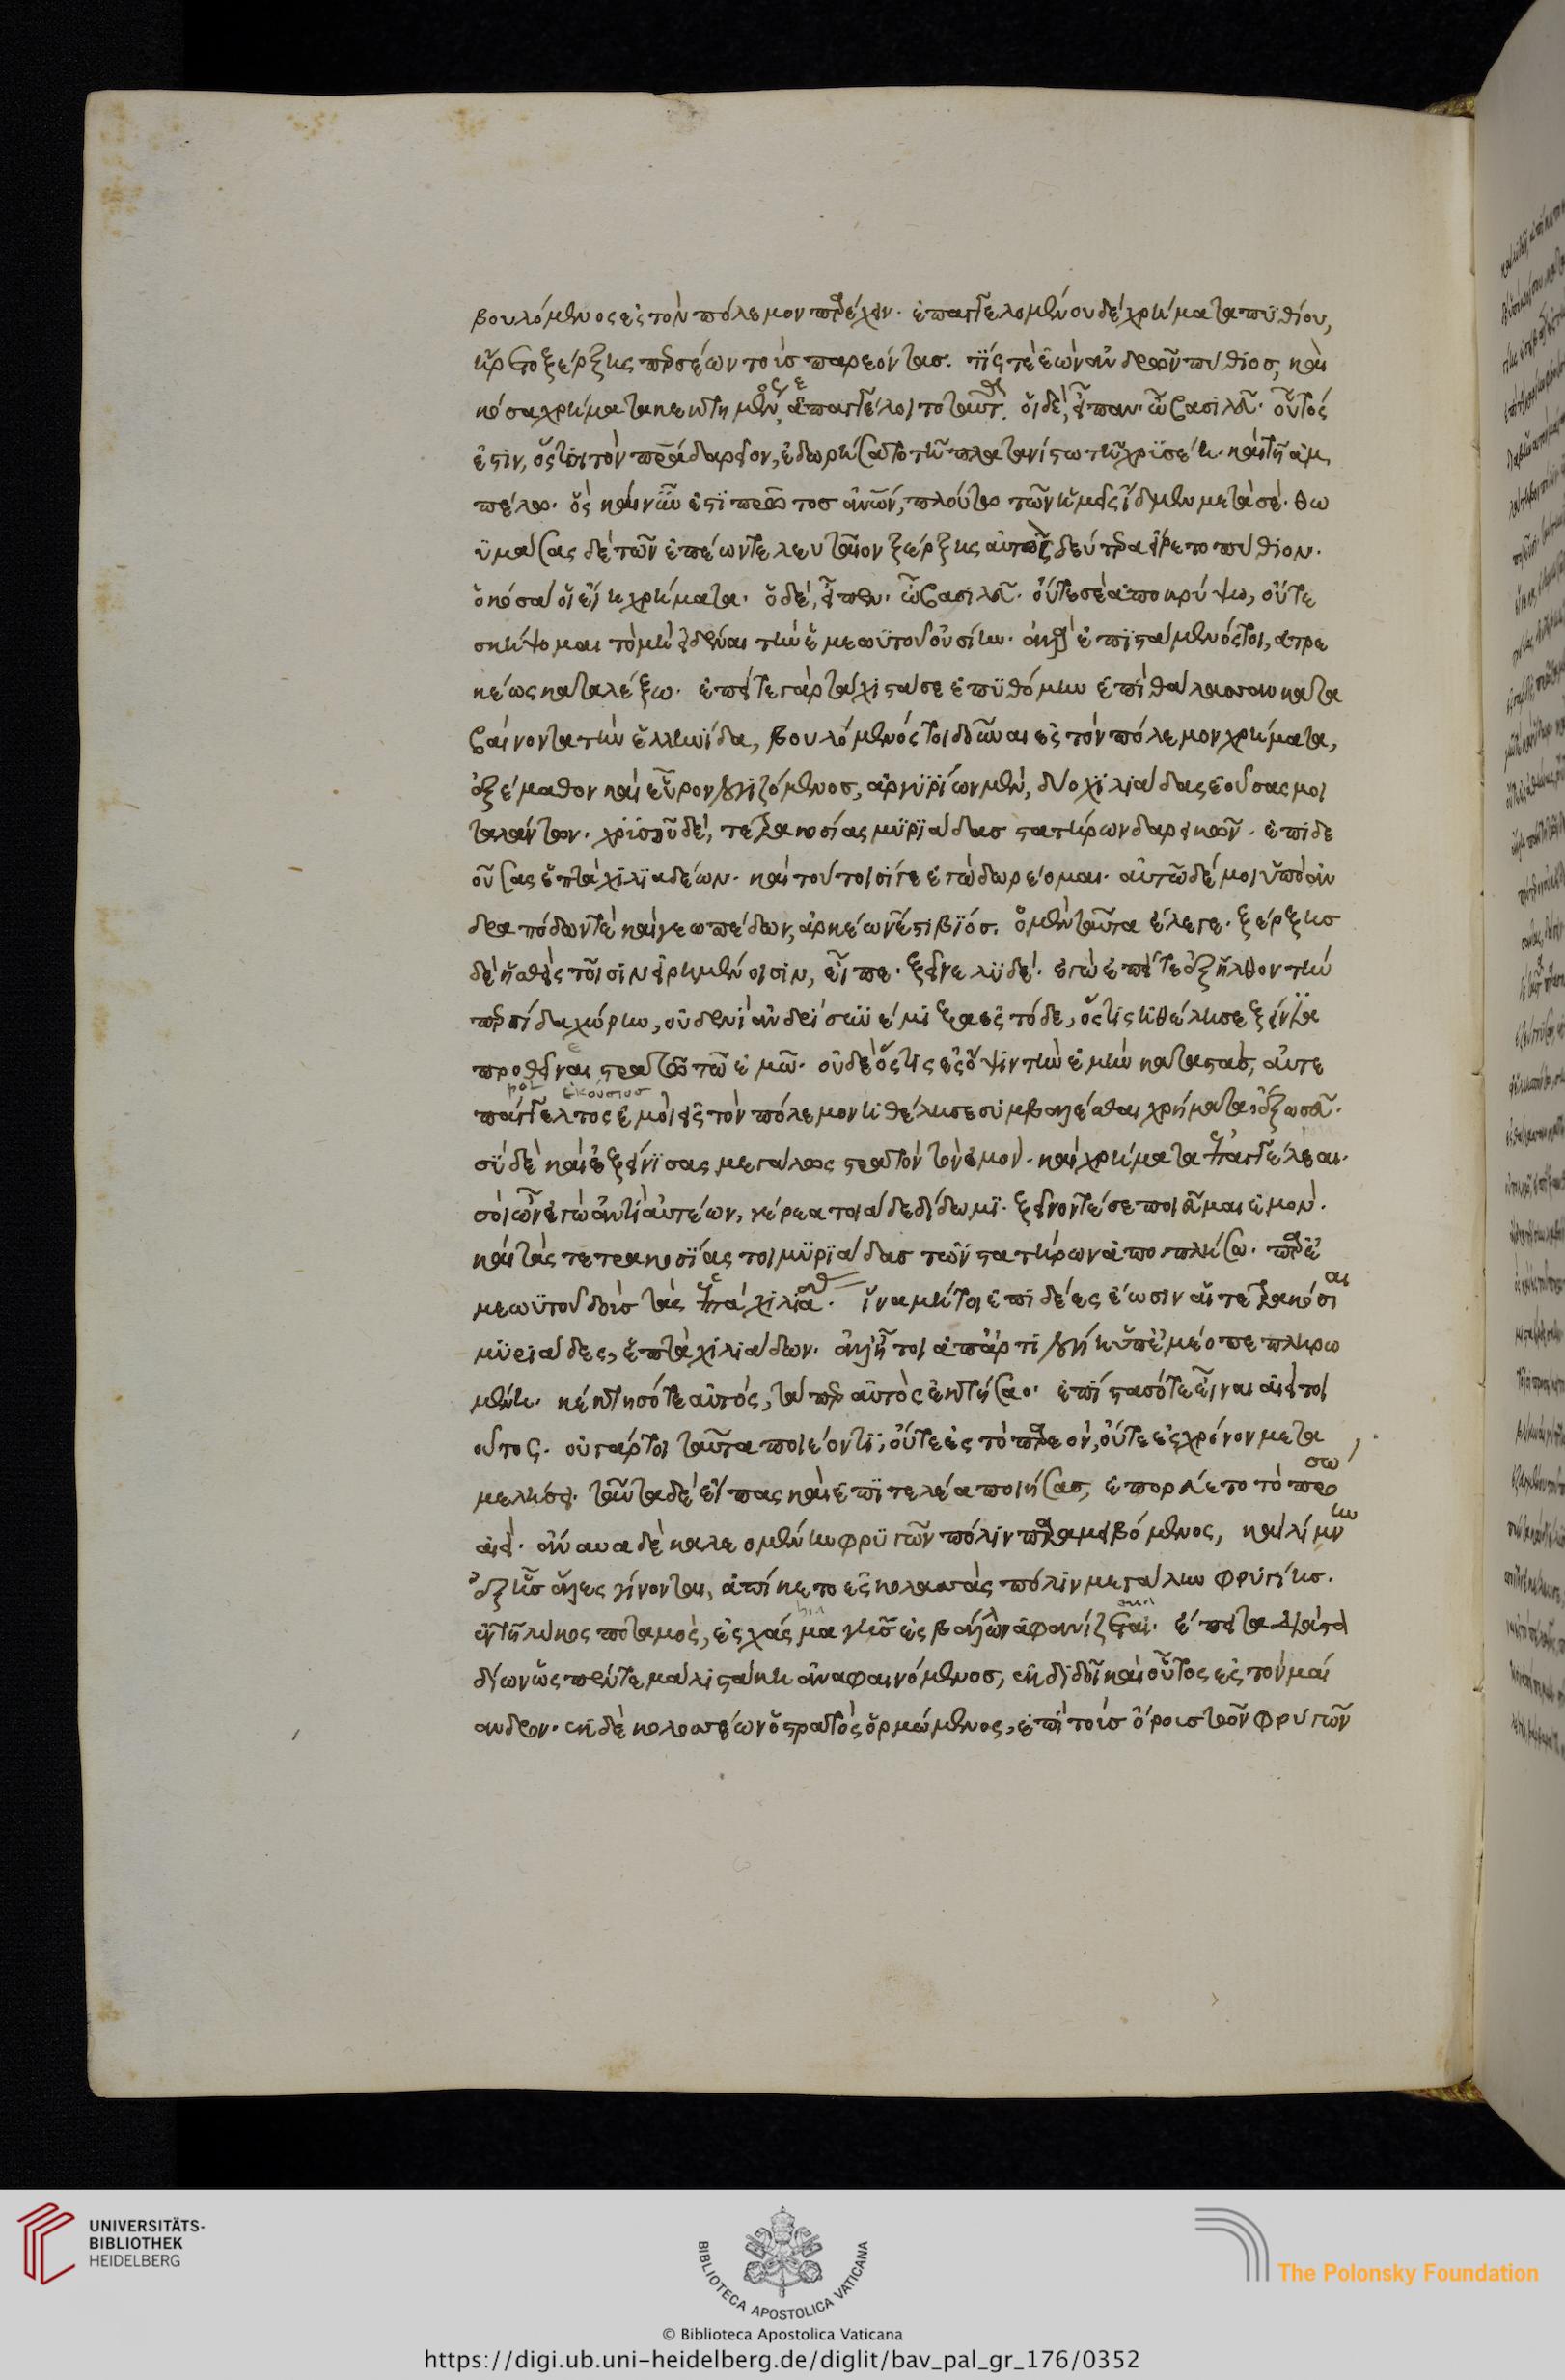 βουλόμενος ἐς τὸν πόλεμον παρέχειν. ἐπαγγελομένου δὲ χρήματα πϋθίου,
εἴρετο ξέρξης πρὸς έων τοὺς παρεόντας. τίς τὲ ἐὼν ἀνδρῶν πύθιος, καὶ
κόσα χρήματα κεκτημένος, ἐπαγγέλοιτο ταῦτα. οἱ δὲ, εἶπαν. ὦ βασιλεῦ. οὗτός
ἐστιν, ὅς τοι τὸν πρά δαρεῖον, ἐδωρήσατο τῆ πλατανίστω τῆ χρϋσέη. καὶ τῆ ἀμ
πέλω. ὃς καὶ νῦν ἐστὶ πρῶτος ἀνων, πλούτω τῶν ἡμεῖς ἴδμεν μετὰ σὲ. θω
ϋμάσας δὲ τῶν ἐπέων τελευταῖον ξέρξης αὐτὸς δεύτερα εἴρετο πύθιον.
ὁκόσα οἱ εἴη χρήματα. ὁ δὲ, εἶπεν. ὦ βασιλεῦ. οὔτε σὲ ἀποκρύψω, οὔτε
σκήψομαι τὸ μὴ εἰδέναι τὴν ἐμεωϋτοῦ οὐσίην. ἀλλ' ἐπϊστάμενός τοι, ἀτρε
κέως καταλέξω. ἐπείτε γὰρ τάχιστά σε ἐπϋθόμην ἐπὶ θάλασσαν κατα
βαίνοντα τὴν ἑλληνίδα, βουλόμενός τοι δοῦναι ἐς τὸν πόλεμον χρήματα,
ἐξέμαθον καὶ εὗρον λογιζόμενος, ἀργϋρίων μὲν, δύο χϊλιάδας ἐούσας μοι
ταλάντων. χρϋσοῦ δὲ, τετρακοσίας μϋρϊάδας στατήρων δαρεικῶν. ἐπιδε
ούσας ἑπτὰ χιλϊαδέων. καὶ τούτοισί γε ἐγὼ δωρέομαι. αὐτῶ δέ μοι ὑπὸ ἀν
δραπόδων τὲ καὶ γεωπέδων, ἀρκέων ἐστὶ βϊός. ὁ μὲν ταῦτα ἔλεγε. ξέρξης
δὲ ἡσθεὶς τοῖσιν εἰρημένοισιν, εἶπε. ξεῖνε λϋδὲ. ἐγὼ ἐπείτε ἐξῆλθον τὴν
περσίδα χώρην, οὐδενὶ ἀνδρὶ σϋνέμιξα ἐς τόδε, ὅστις ἠθέλησε ξείνϊα
προθεῖναι στρατῶ τῶ ἐμῶ. οὐδὲ ὅστις ἐς ὄψιν τὴν ἐμὴν καταστὰς, αὐτε
ἑκούσιος
πάγγελτος ἐμοὶ ἐς τὸν πόλεμον ἠθέλησε συμβαλέσθαι χρήματα ἔξω σεῦ.
σϋ δὲ καὶ ἐξείνϊσας μεγάλως στρατὸν τὸν ἐμὸν. καὶ χρήματα ἐπαγγέλεαι.
σοὶ ὦν ἐγὼ ἀντὶ αὐτέων, γέρεα τοιάδε δίδωμϊ. ξεῖνόν τέ σε ποιεῦμαι ἐμὸν.
καὶ τὰς τετρακοσϊας τοι μϋρϊάδας τῶν στατήρων ἀποπλήσω. παρ' ἐ
μεωϋτοῦ δοὺς τὰς ἑπτὰ χιλιάδας. ἵνα μή τοι ἐπιδέες ἔωσιν αἱ τετρακόσιαι
μϋριάδες, ἑπτὰ χιλιάδων. ἀλλ' ἦ τοι ἀπάρτι λογίη ὑπ' ἐμέο πεπληρω
μένη. κέκτησό τε αὐτός, τά περ αὐτὸς ἐκτήσαο. ἐπϊστασό τε εἶναι αἰεὶ τοι
οῦτος. οὐ γάρ τοι ταῦτα ποιέοντϊ, οὔτε ἐς τὸ παρεὸν, οὔτε ἐς χρόνον μετα
μελήσει. ταῦτα δὲ εἴπας καὶ ἐπϊτελέα ποιήσας, ἐπορεύετο τὸ πρόσω
αἰεὶ. ἄναυα δὲ καλεομένην φρϋγῶν πόλιν παραμειβόμενος, καὶ λίμνην
ἐξ ἧς ἅλες γίνονται, ἀπίκετο ἐς κολασσὰς πόλιν μεγάλην φρϋγίης.
ἐν τῆ λύκος ποταμὸς, ἐς χάσμα γῆς ἐς βάλλων ἀφανίζεται. ἔπειτα διὰ στα
δίων ὡς πέντε μάλιστά κη ἀναφαινόμενος, ἐκδϊδοῖ καὶ οὗτος ἐς τὸν μαί
ανδρον. ἐκ δὲ κολοσσέων ὁ στρατὸς ὁρμώμενος, ἐπὶ τοὺς ὄρους τῶν φρυγῶν
UNIVERSITÄTS-
BIBLIOTHEK
HEIDELBERG
BIBLIOTECA APOSTOLICA VATICANA
The Polonsky Foundation
© Biblioteca Apostolica Vaticana
https://digi.ub.uni-heidelberg.de/diglit/bav_pal_gr_176/0352